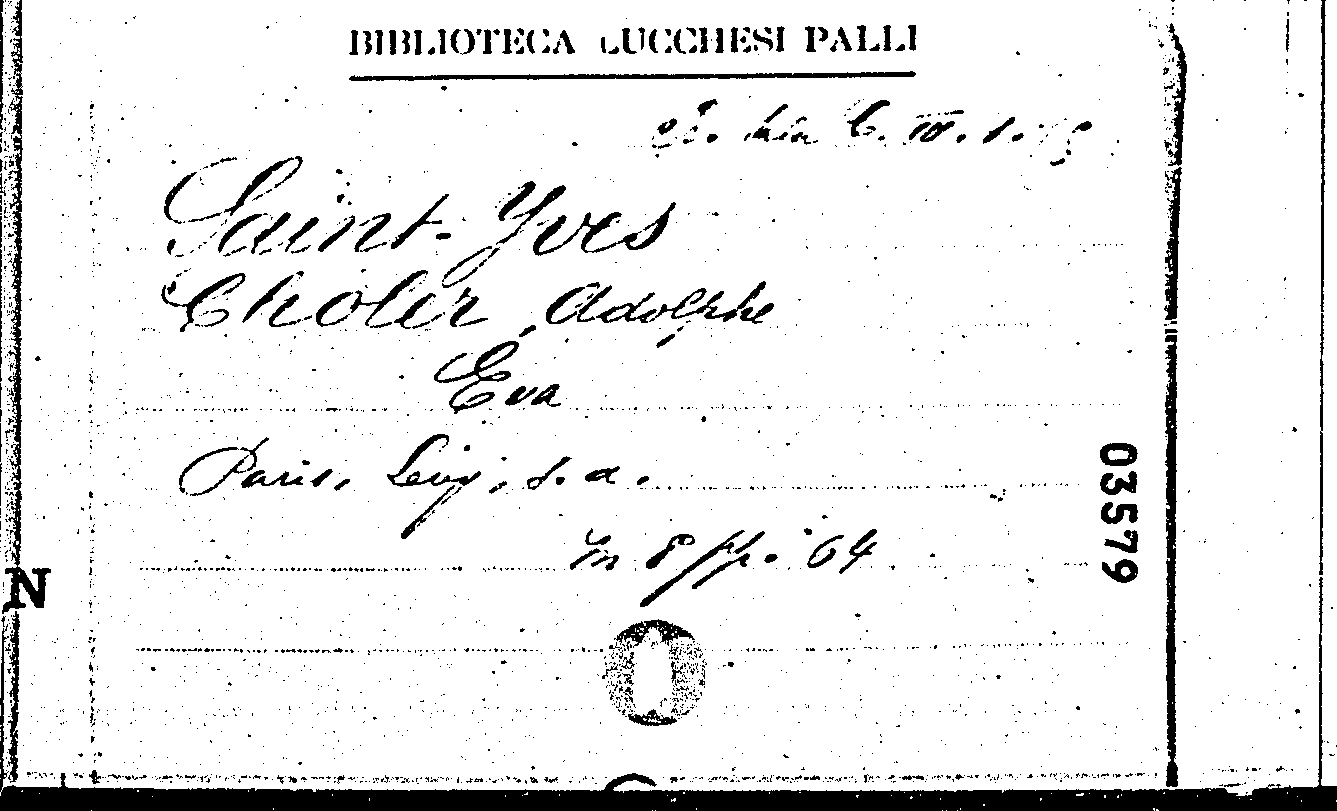 BIBLIOTECA LUCCHESI PALLI
C. III. 1.
Saint-Yves
Choler, Adolphe
Eva
Paris, Levy, s. a.
In 8 pp. 64
03579
N